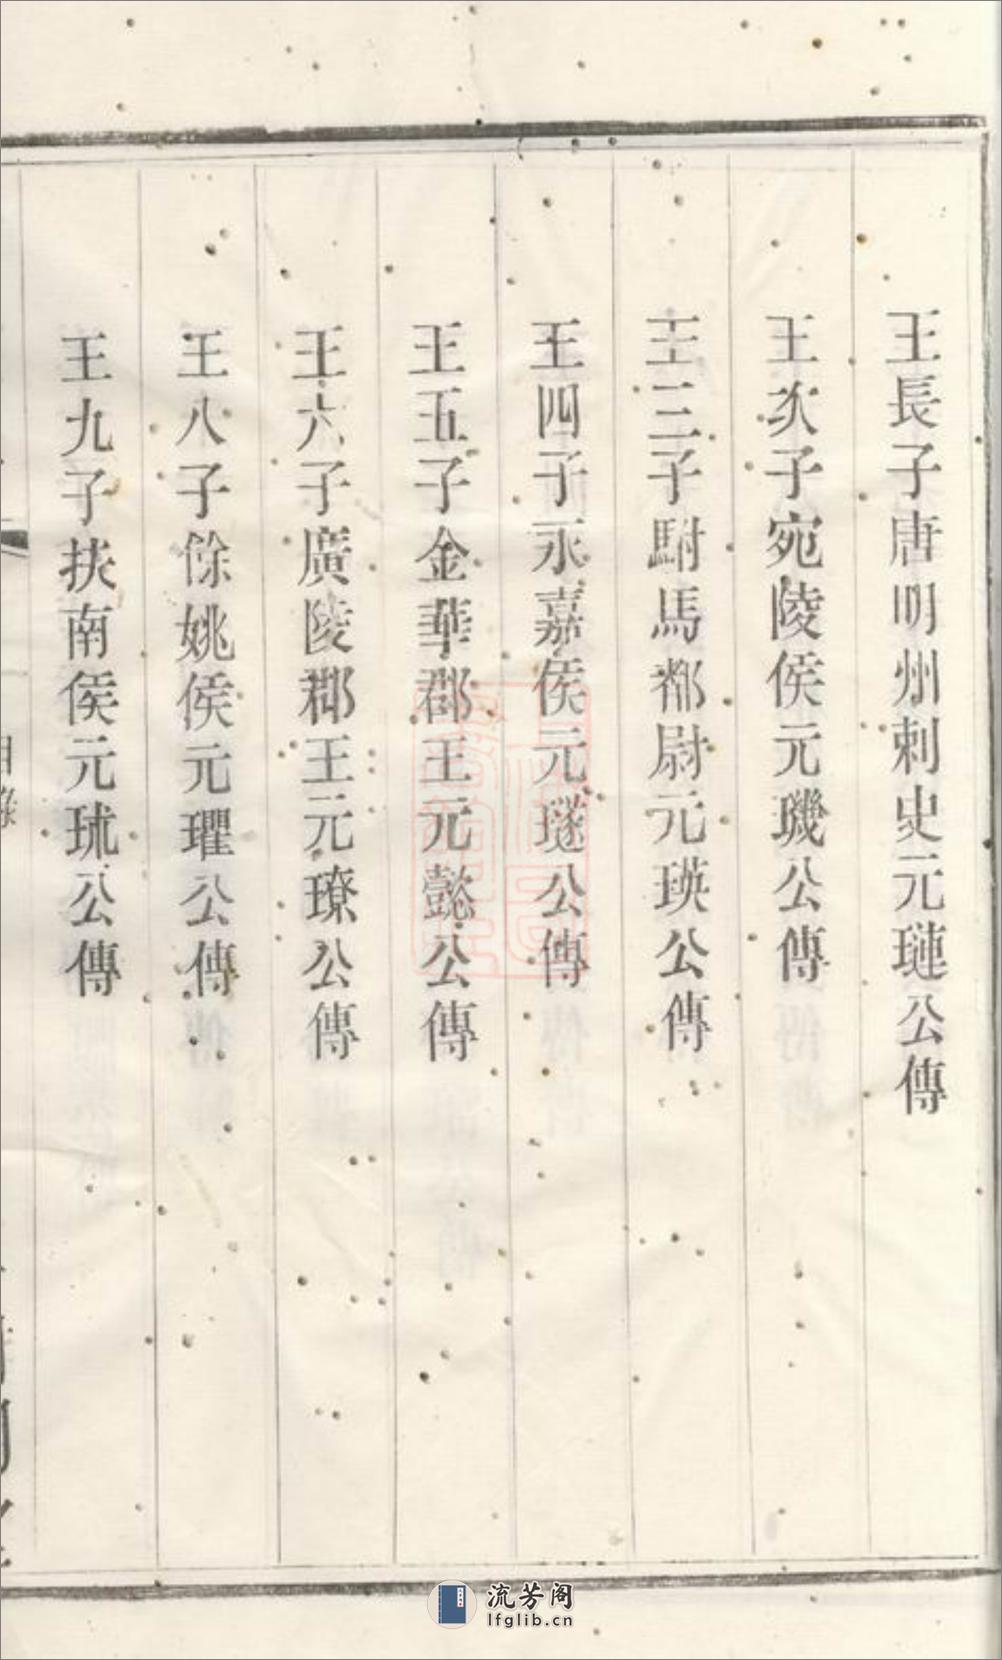 王長子唐明州刺史元璉公傳
王次子宛陵侯元璣公傳
王三子駙馬都尉元瑛公傳
王四子永嘉侯元璲公傳
王五子金華郡王元懿公傳
王六子廣陵郡王元璙公傳
王八子餘姚侯元瓘公傳
王九子扶南侯元球公傳
目錄
流芳阁
lfglib.cn